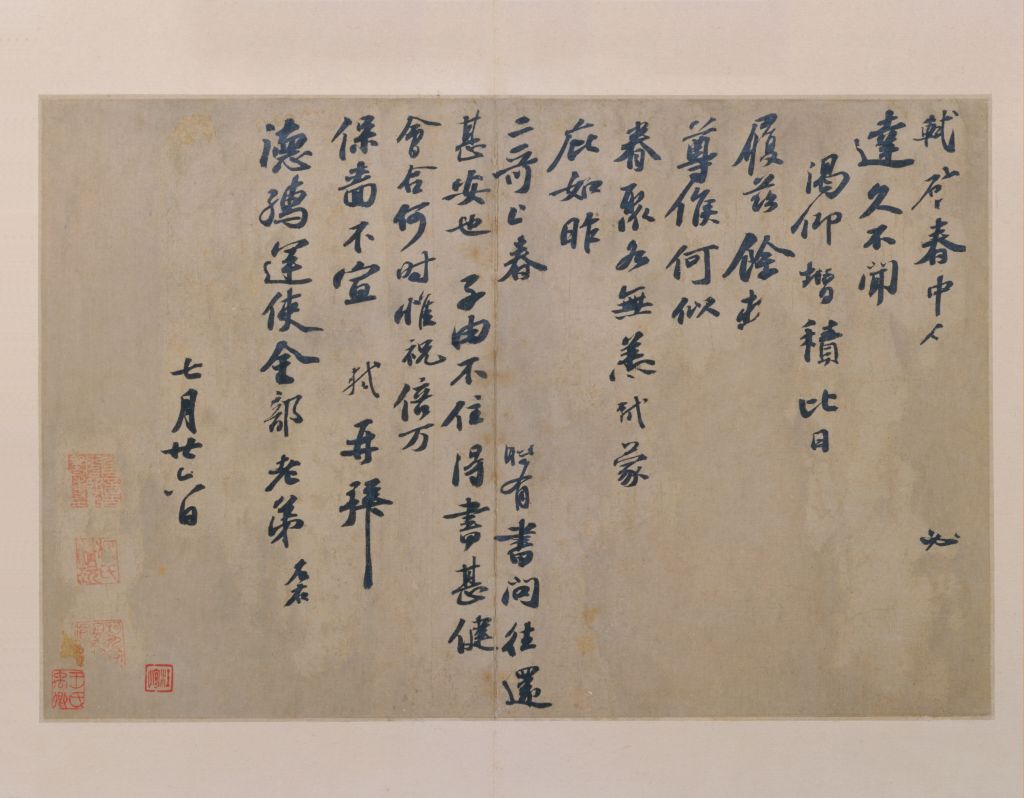 軾啓春中人 必
達久不聞
渴仰增積比日
履茲餘寒
尊候何似
眷聚各無恙軾蒙
庇如昨
二哥上春 有書問往還
甚安也子由不住得書甚健
會合何時惟祝倍万
保嗇不宣 軾再拜
德孺運使金部老弟
七月廿六日